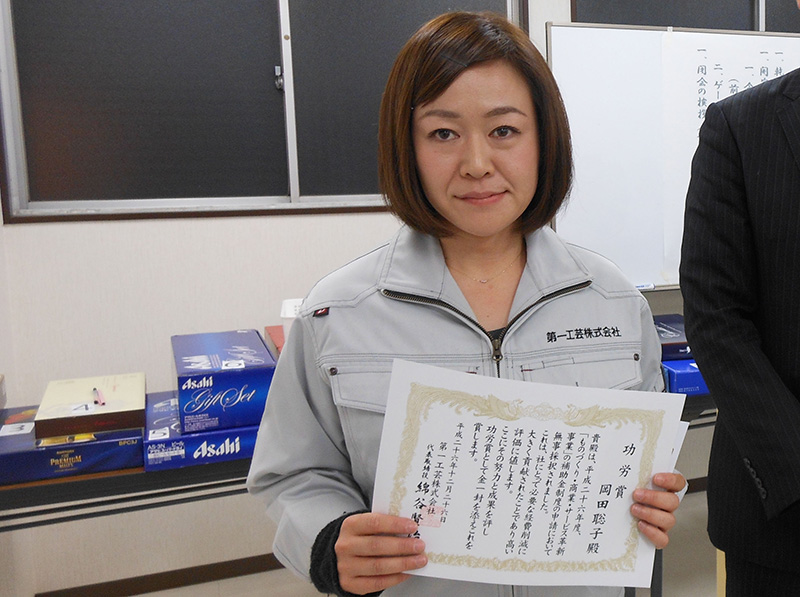 一、閉会の挨拶
二、ゲー
(前
第一工芸株式会社
功労賞
岡田聡子殿
貴殿は、平成二十六年度、
「ものづくり・商業・サービス革新
事業」の補助金制度の申請において
無事採択されました。
これは、社にとって必要な経費削減に
大きく貢献されたことであり高い
評価に値します。
ここにその努力と成果を評し
功労賞として金一封を添えこれを
賞します。
平成二十六年十二月二十六日
第一工芸株式会社
代表取締役 綿谷
Asahi
Gift Set
Asahi
AS-3N
PREMIUM
BPC3M
4
5